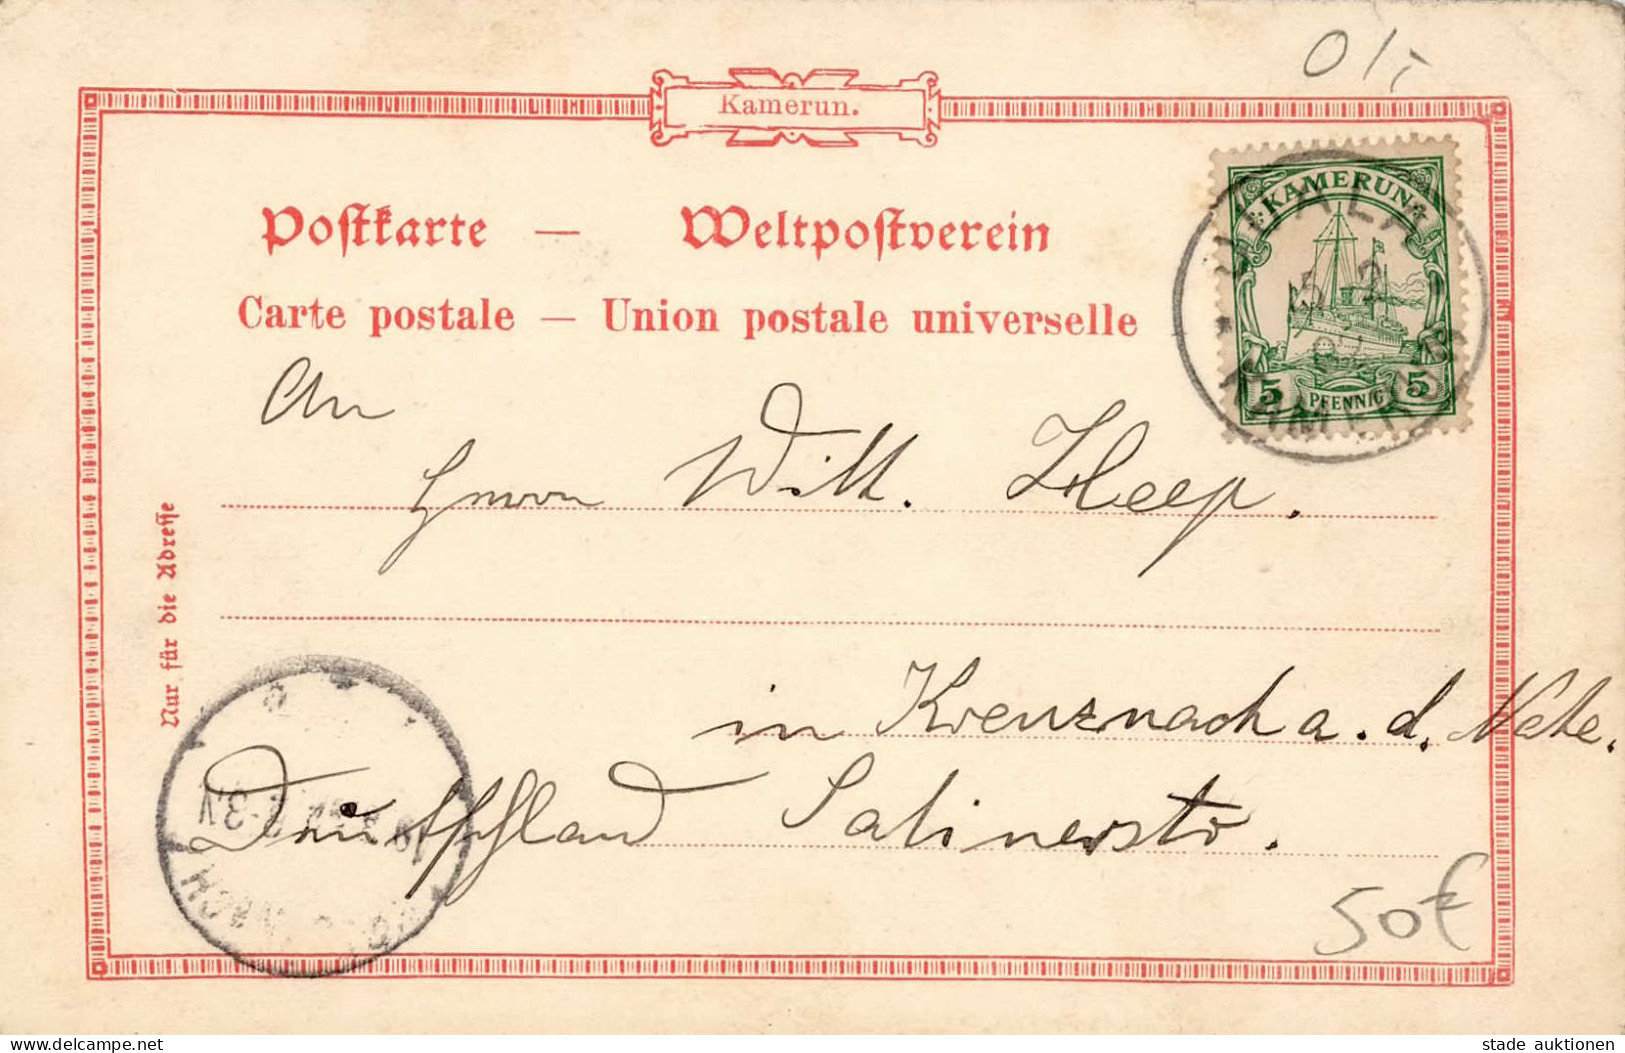 O/7
Kamerun.
KAMERUN
5 PFENNIG 5
Postkarte — Weltpostverein
Carte postale — Union postale universelle
An
Herrn Wilh. Heep.
in Kreuznach a. d. Nahe.
Deutschland Salinerstr.
Nur für die Adresse
50€
delcampe.net
stade auktionen